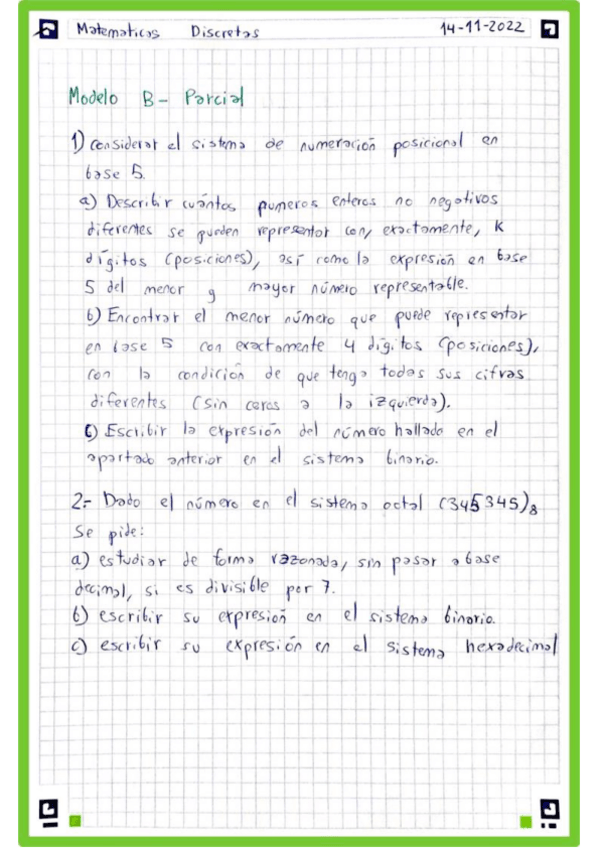 Matematicas Discretas 14-11-2022
Modelo B- Parcial
1) Considerar el sistema de numeración posicional en
base 5.
a) Describir cuántos numeros enteros no negativos
diferentes se pueden representar con, exactamente, K
dígitos (posiciones), así como la expresión en base
5 del menor y mayor número representable.
b) Encontrar el menor número que puede representar
en base 5 con exactamente 4 dígitos (posiciones),
con la condición de que tenga todas sus cifras
diferentes (sin ceros a la izquierda).
c) Escribir la expresión del número hallado en el
apartado anterior en el sistema binario.
2.- Dado el número en el sistema octal (345345)₈
Se pide:
a) estudiar de forma razonada, sin pasar a base
decimal, si es divisible por 7.
b) escribir su expresión en el sistema binario.
c) escribir su expresión en el sistema hexadecimal